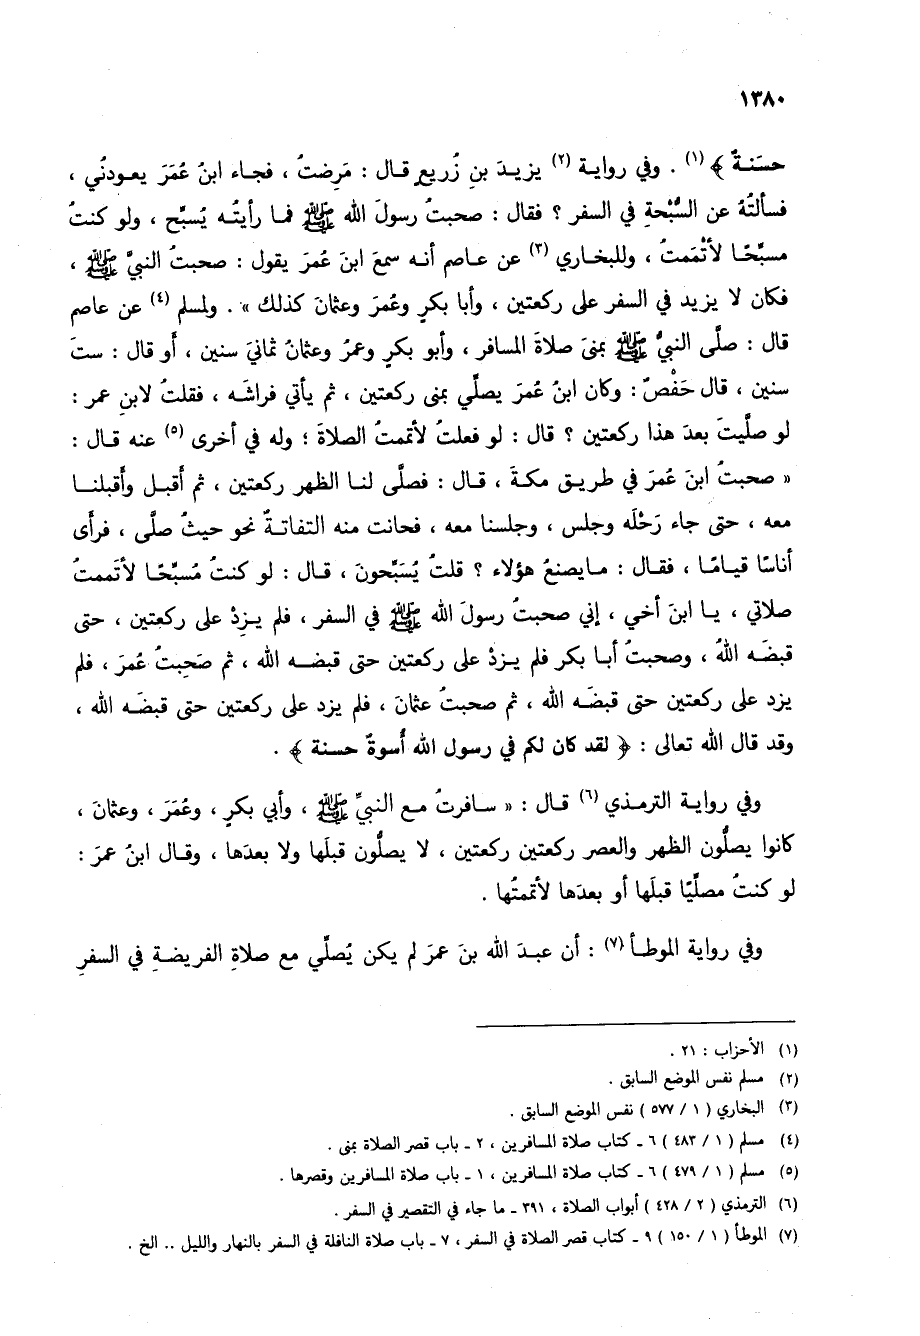 ١٣٨٠
حسَنةٌ ﴾ (١) . وفي رواية (٢) يزيدَ بنِ زُريعٍ قال : مَرِضتُ ، فجاء ابنُ عُمَرَ يعودنُي ،
فسألتُهُ عن السُّبْحةِ في السفر ؟ فقال : صحبتُ رسولَ الله ﷺ فما رأيتُه يُسبِّح ، ولو كنتُ
مسبِّحًا لأتْمَمتُ ، وللبخاري (٣) عن عاصم أنه سمعَ ابنَ عُمرَ يقول : صحبتُ النبيَّ ﷺ ،
فكان لا يزيد في السفر على ركعتين ، وأبا بكرٍ وعُمرَ وعثمانَ كذلك » . ولمسلم (٤) عن عاصم
قال : صلَّى النبيُّ ﷺ بمنىَ صلاةَ المسافر ، وأبو بكرٍ وعمرُ وعثمانُ ثمانيَ سنين ، أَو قال : ستَ
سنين ، قال حَفْصٌ : وكان ابنُ عُمرَ يصلِّي بمنى ركعتين ، ثم يأتي فراشَه ، فقلتُ لابنِ عمر :
لو صلَّيتَ بعدَ هذا ركعتين ؟ قال : لو فعلتُ لأتممتُ الصلاةَ ؛ وله في أخرى (٥) عنه قال :
« صحبتُ ابنَ عمَرَ في طريق مكةَ ، قال : فصلَّى لنا الظهر ركعتين ، ثم أَقبل وأَقبلنا
معه ، حتى جاء رَحْلَه وجلس ، وجلسنا معه ، فحانت منه التفاتةٌ نحو حيثُ صلَّى ، فرأَى
أناسًا قيامًا ، فقال : مايصنعُ هؤلاء ؟ قلتُ يُسَبِّحونَ ، قال : لو كنتُ مُسبِّحًا لأتَممتُ
صلاتي ، يا ابنَ أخي ، إني صحبتُ رسولَ الله ﷺ في السفر ، فلم يزِدْ على ركعتين ، حتى
قبضَه اللهُ ، وصحبتُ أبا بكر فلم يزدْ على ركعتين حتى قبضه الله ، ثم صَحِبتُ عُمرَ ، فلم
يزد على ركعتين حتى قبضَه الله ، ثم صحبتُ عثمانَ ، فلم يزد على ركعتين حتى قبضَه الله ،
وقد قال الله تعالى : ﴿ لقد كان لكم في رسول الله أُسوةٌ حسنة ﴾ .
وفي رواية الترمذي (٦) قال : « سافرتُ مع النبيِّ ﷺ ، وأبي بكرٍ ، وعُمَرَ ، وعثمانَ ،
كانوا يصلُّون الظهر والعصر ركعتين ركعتين ، لا يصلُّون قبلَها ولا بعدَها ، وقال ابنُ عمرَ :
لو كنتُ مصلِّيًا قبلَها أو بعدَها لأتممتُها .
وفي رواية الموطأ (٧) : أن عبدَ الله بنَ عمرَ لم يكن يُصلِّي مع صلاةِ الفريضةِ في السفرِ
(١) الأحزاب : ٢١ .
(٢) مسلم نفس الموضع السابق .
(٣) البخاري ( ١ / ٥٧٧ ) نفس الموضع السابق .
(٤) مسلم ( ١ / ٤٨٣ ) ٦ ـ كتاب صلاة المسافرين ، ٢ ـ باب قصر الصلاة بمنى .
(٥) مسلم ( ١ / ٤٧٩ ) ٦ ـ كتاب صلاة المسافرين ، ١ ـ باب صلاة المسافرين وقصرها .
(٦) الترمذي ( ٢ / ٤٢٨ ) أبواب الصلاة ، ٣٩١ ـ ما جاء في التقصير في السفر .
(٧) الموطأ ( ١ / ١٥٠ ) ٩ ـ كتاب قصر الصلاة في السفر ، ٧ ـ باب صلاة النافلة في السفر بالنهار والليل .. الخ .